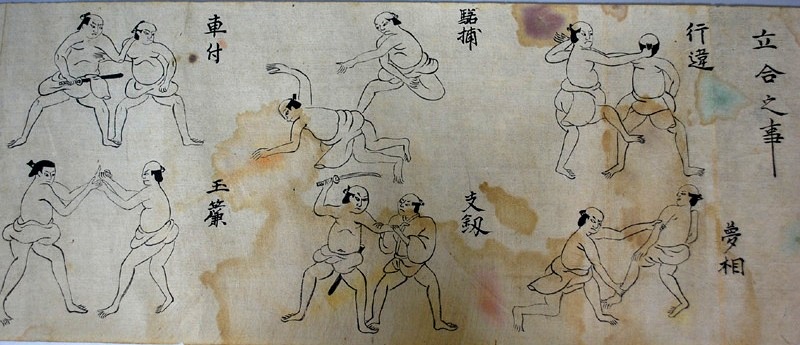 立合之事
行違
夢相
捕
支釼
車付
玉簾